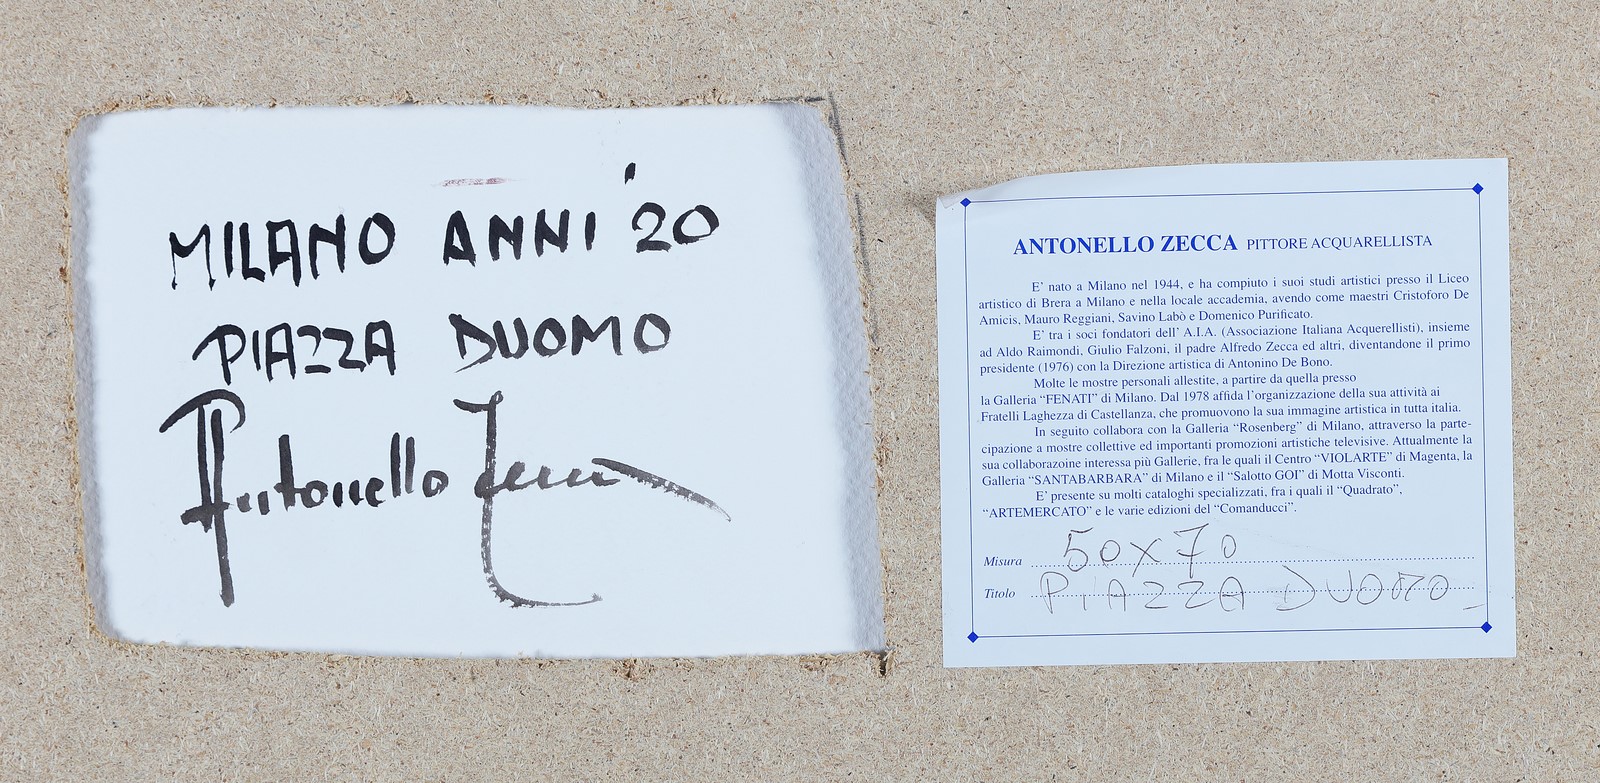 MILANO ANNI '20
PIAZZA DUOMO
Antonello Zecca
ANTONELLO ZECCA PITTORE ACQUARELLISTA
E' nato a Milano nel 1944, e ha compiuto i suoi studi artistici presso il Liceo
artistico di Brera a Milano e nella locale accademia, avendo come maestri Cristoforo De
Amicis, Mauro Reggiani, Savino Labò e Domenico Purificato.
E' tra i soci fondatori dell' A.I.A. (Associazione Italiana Acquerellisti), insieme
ad Aldo Raimondi, Giulio Falzoni, il padre Alfredo Zecca ed altri, diventandone il primo
presidente (1976) con la Direzione artistica di Antonino De Bono.
Molte le mostre personali allestite, a partire da quella presso
la Galleria “FENATI” di Milano. Dal 1978 affida l'organizzazione della sua attività ai
Fratelli Laghezza di Castellanza, che promuovono la sua immagine artistica in tutta italia.
In seguito collabora con la Galleria “Rosenberg” di Milano, attraverso la parte-
cipazione a mostre collettive ed importanti promozioni artistiche televisive. Attualmente la
sua collaborazoine interessa più Gallerie, fra le quali il Centro “VIOLARTE” di Magenta, la
Galleria “SANTABARBARA” di Milano e il “Salotto GOI” di Motta Visconti.
E' presente su molti cataloghi specializzati, fra i quali il “Quadrato”,
“ARTEMERCATO” e le varie edizioni del “Comanducci”.
Misura 50X70
Titolo PIAZZA DUOMO